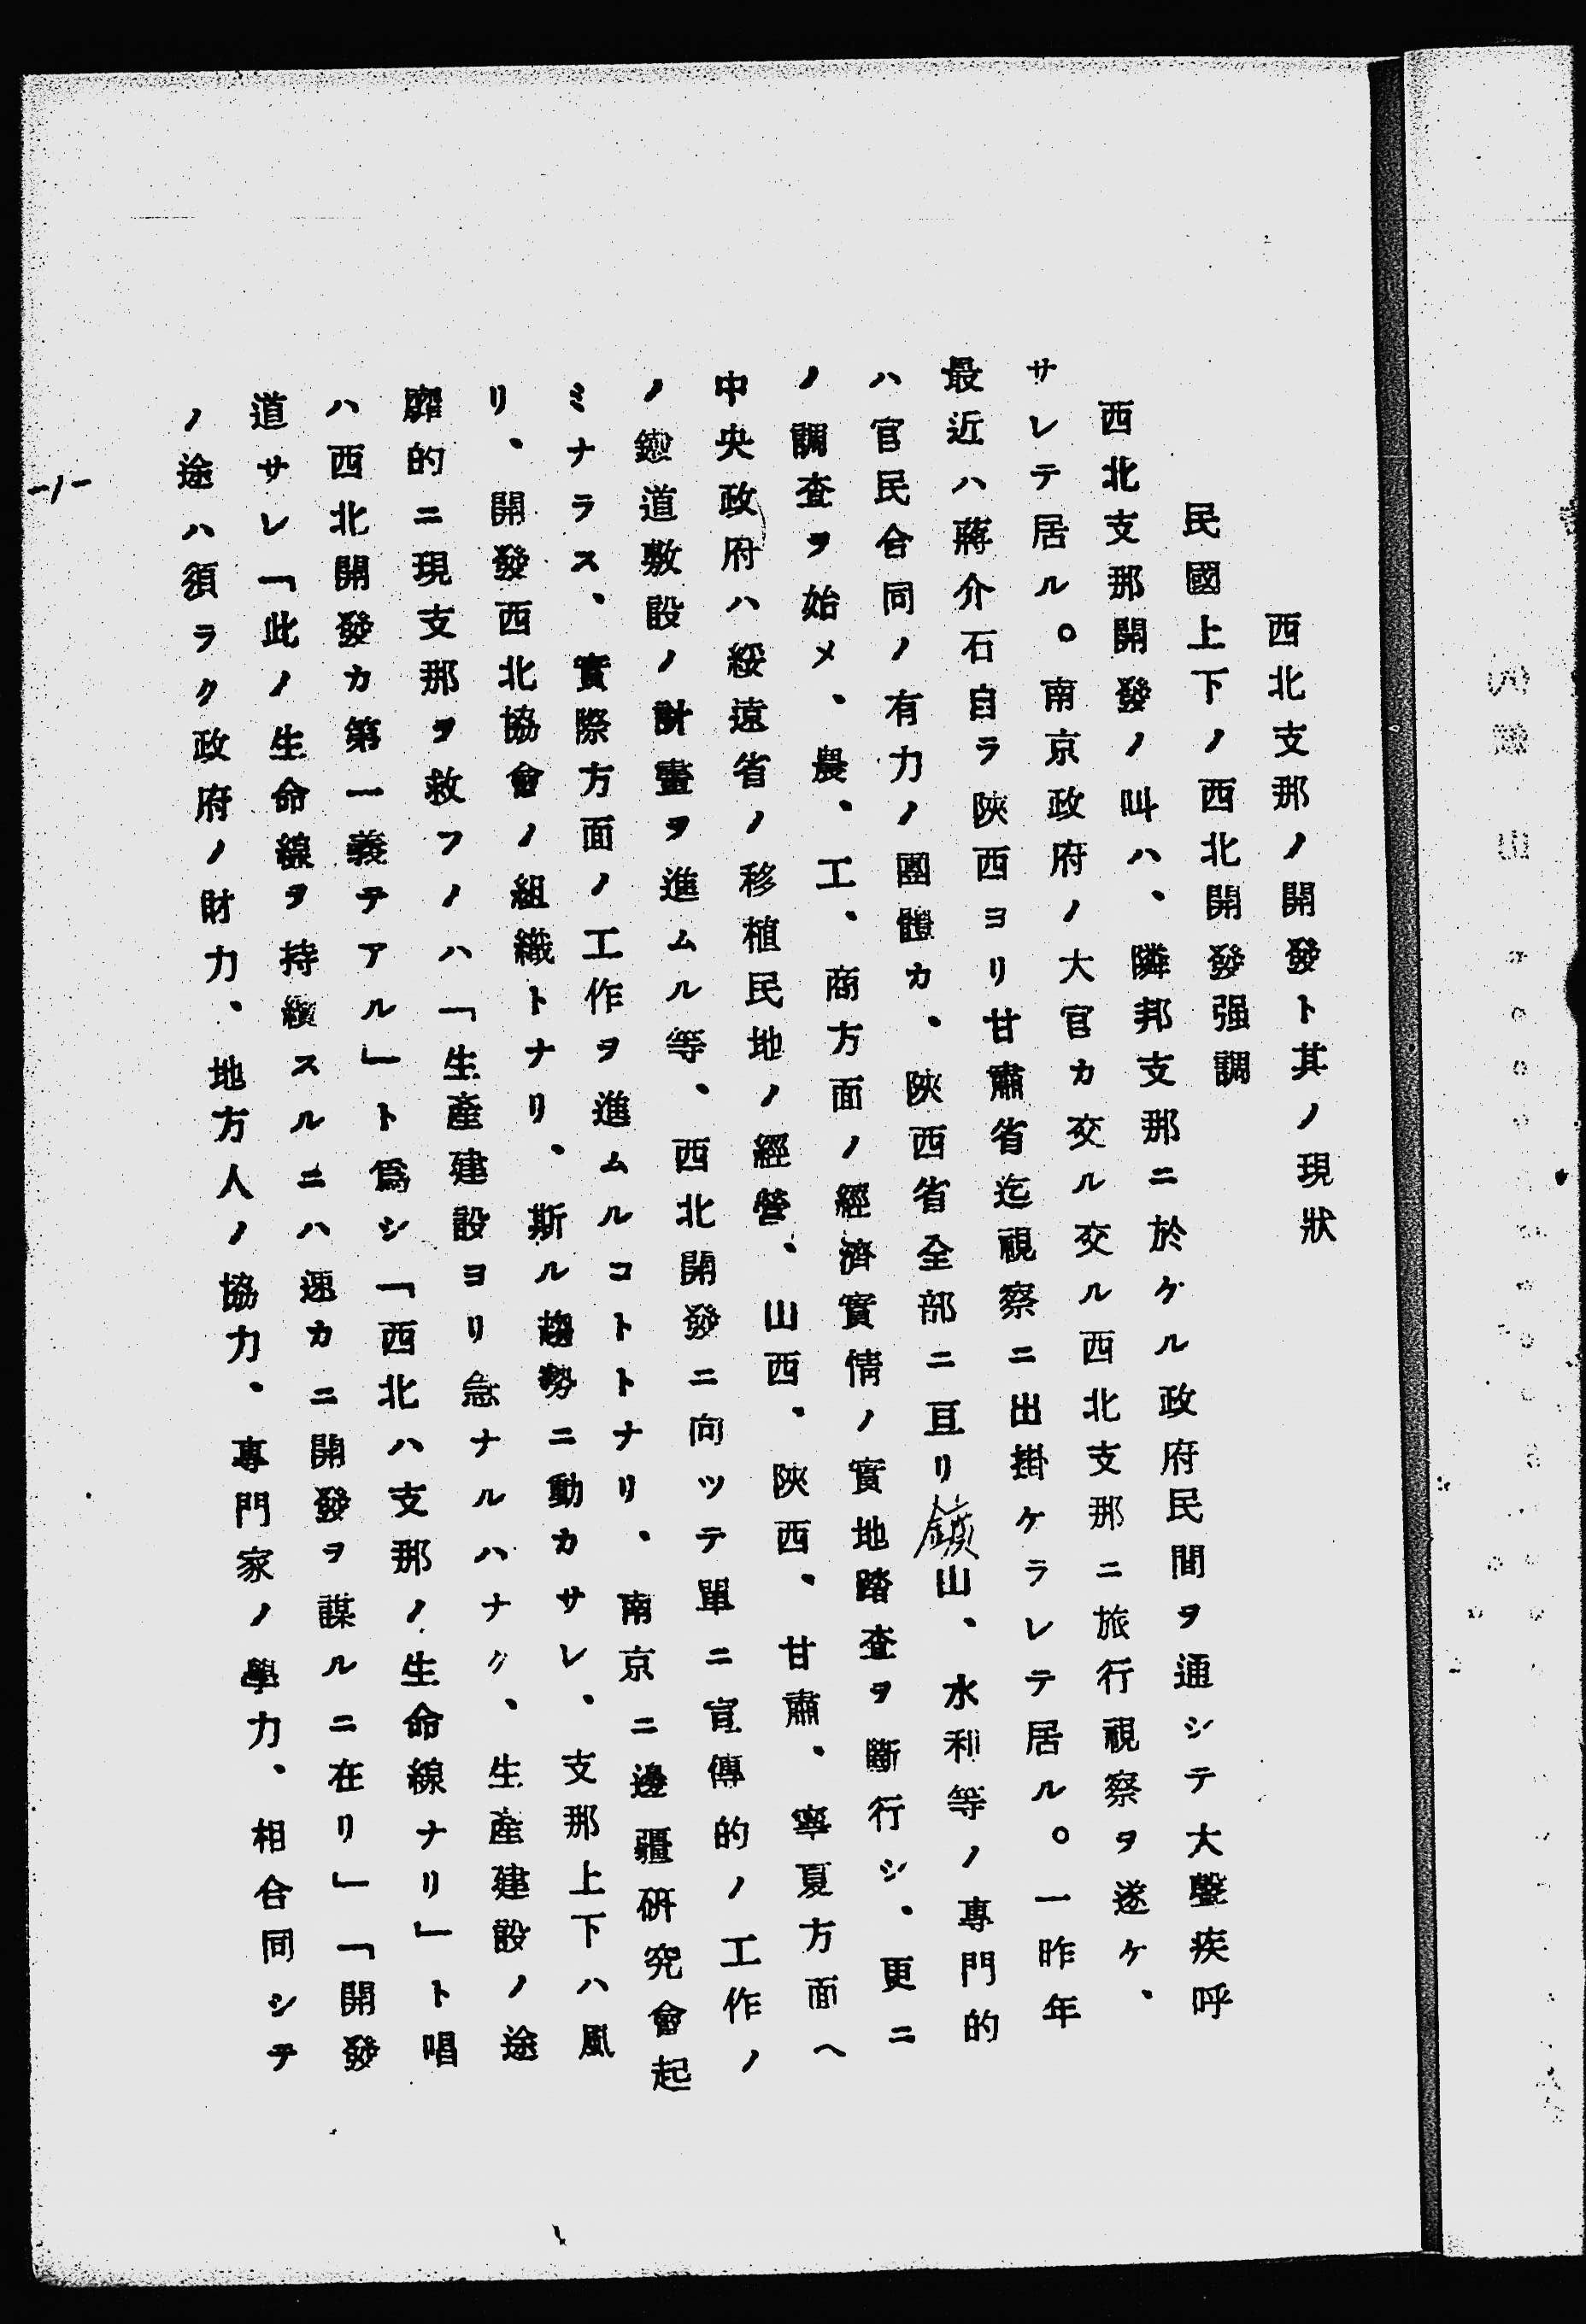 西北支那ノ開發ト其ノ現狀
民國上下ノ西北開發强調
西北支那開發ノ叫ハ、隣邦支那ニ於ケル政府民間ヲ通シテ大聲疾呼
サレテ居ル。南京政府ノ大官カ交ル交ル西北支那ニ旅行視察ヲ遂ケ、
最近ハ蔣介石自ラ陜西ヨリ甘肅省迄視察ニ出掛ケラレテ居ル。一昨年
ハ官民合同ノ有力ノ團體カ、陜西省全部ニ亘リ鑛山、水利等ノ專門的
ノ調査ヲ始メ、農、工、商方面ノ經濟實情ノ實地踏査ヲ斷行シ、更ニ
中央政府ハ綏遠省ノ移植民地ノ經營、山西、陜西、甘肅、寧夏方面ヘ
ノ鐵道敷設ノ計畫ヲ進ムル等、西北開發ニ向ツテ單ニ宣傳的ノ工作ノ
ミナラス、實際方面ノ工作ヲ進ムルコトトナリ、南京ニ邊疆硏究會起
リ、開發西北協會ノ組織トナリ、斯ル趨勢ニ動カサレ、支那上下ハ風
靡的ニ現支那ヲ救フノハ「生產建設ヨリ急ナルハナク、生產建設ノ途
ハ西北開發カ第一義テアル」ト爲シ「西北ハ支那ノ生命線ナリ」ト唱
道サレ「此ノ生命線ヲ持續スルニハ速カニ開發ヲ謀ルニ在リ」「開發
ノ途ハ須ラク政府ノ財力、地方人ノ協力、專門家ノ學力、相合同シテ
-1-